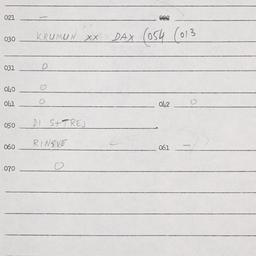 021 —
030 KRUMUN XX DAX (054 (013
031 0
040 0
041 0 042 0
050 DI
060 061 —
070 0